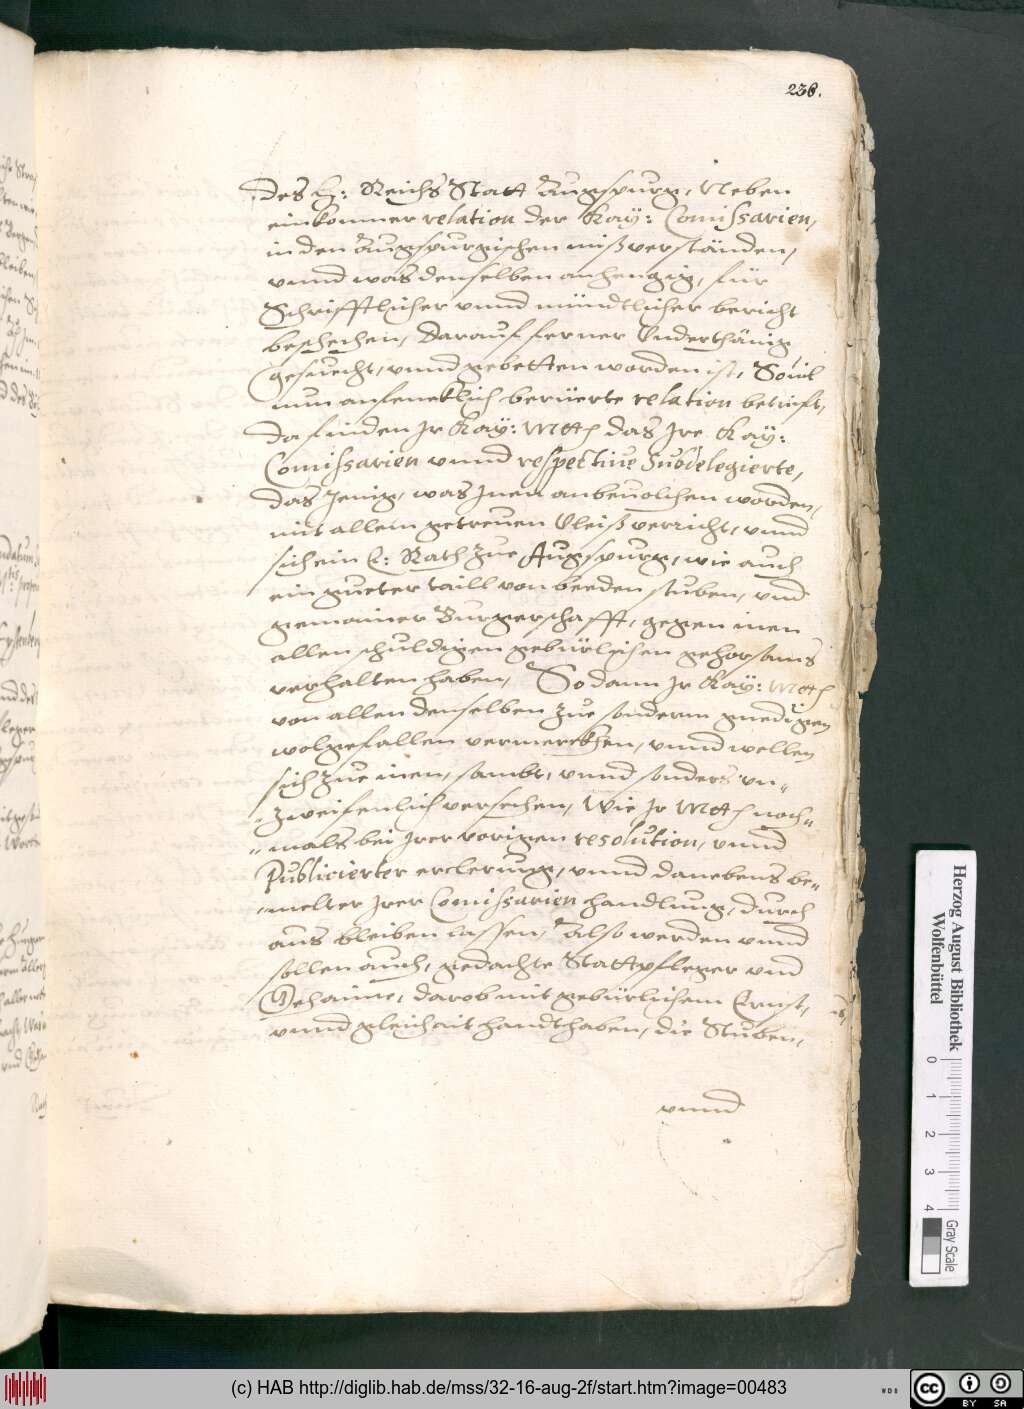 238.
des H: Reichs Statt Augspurg, Neben
einkommer relation der Kay: Comissarien,
in den Augspurgischen mißverständen,
vnnd was denselben anhengig, für
Schrifftlicher vnnd mündtlicher bericht
beschechen, Darauf ferner Vnderthänig
gesuecht, vnnd gebetten worden ist, Souil
nun anfencklich berüerte relation betrifft,
da finden Ir Kay: Mtt das Ire Kay:
Comissarien vnnd respective Subdelegierte,
das Jenig, was Inen anbeuolchen worden,
mit allem getreuen Vleiß verricht, vnnd
sich ein E: Rath zue Augspurg, wie auch
ein gueter taill von beeden stuben, vnd
gemainer Burgerschafft, gegen inen
allen schuldigen gebürlichen gehorsams
verhalten haben, So dann Ir Kay: Mtt
von allen denselben zue sonderm gnedigen
wolgefallen vermerckhen, vnnd wellen
sich zue inen, sambt, vnnd sonders vn-
zweifenlich versechen, Wie Ir Mtt noch-
mals bei Irer vorigen resolution, vnnd
Publicierter erclerung, vnnd danebens be-
melter Irer Comissarien handlung, durch
aus bleiben lassen, Also werden vnnd
sollen auch, gedachte Stattpfleger vnd
Gehaime, darob mit gebürlichem Ernst,
vnnd gleichait handthaben, die Stuben,
vnnd
Herzog August Bibliothek
Wolfenbüttel
0 1 2 3 4
Gray Scale
(c) HAB http://diglib.hab.de/mss/32-16-aug-2f/start.htm?image=00483
WDB
CC BY SA